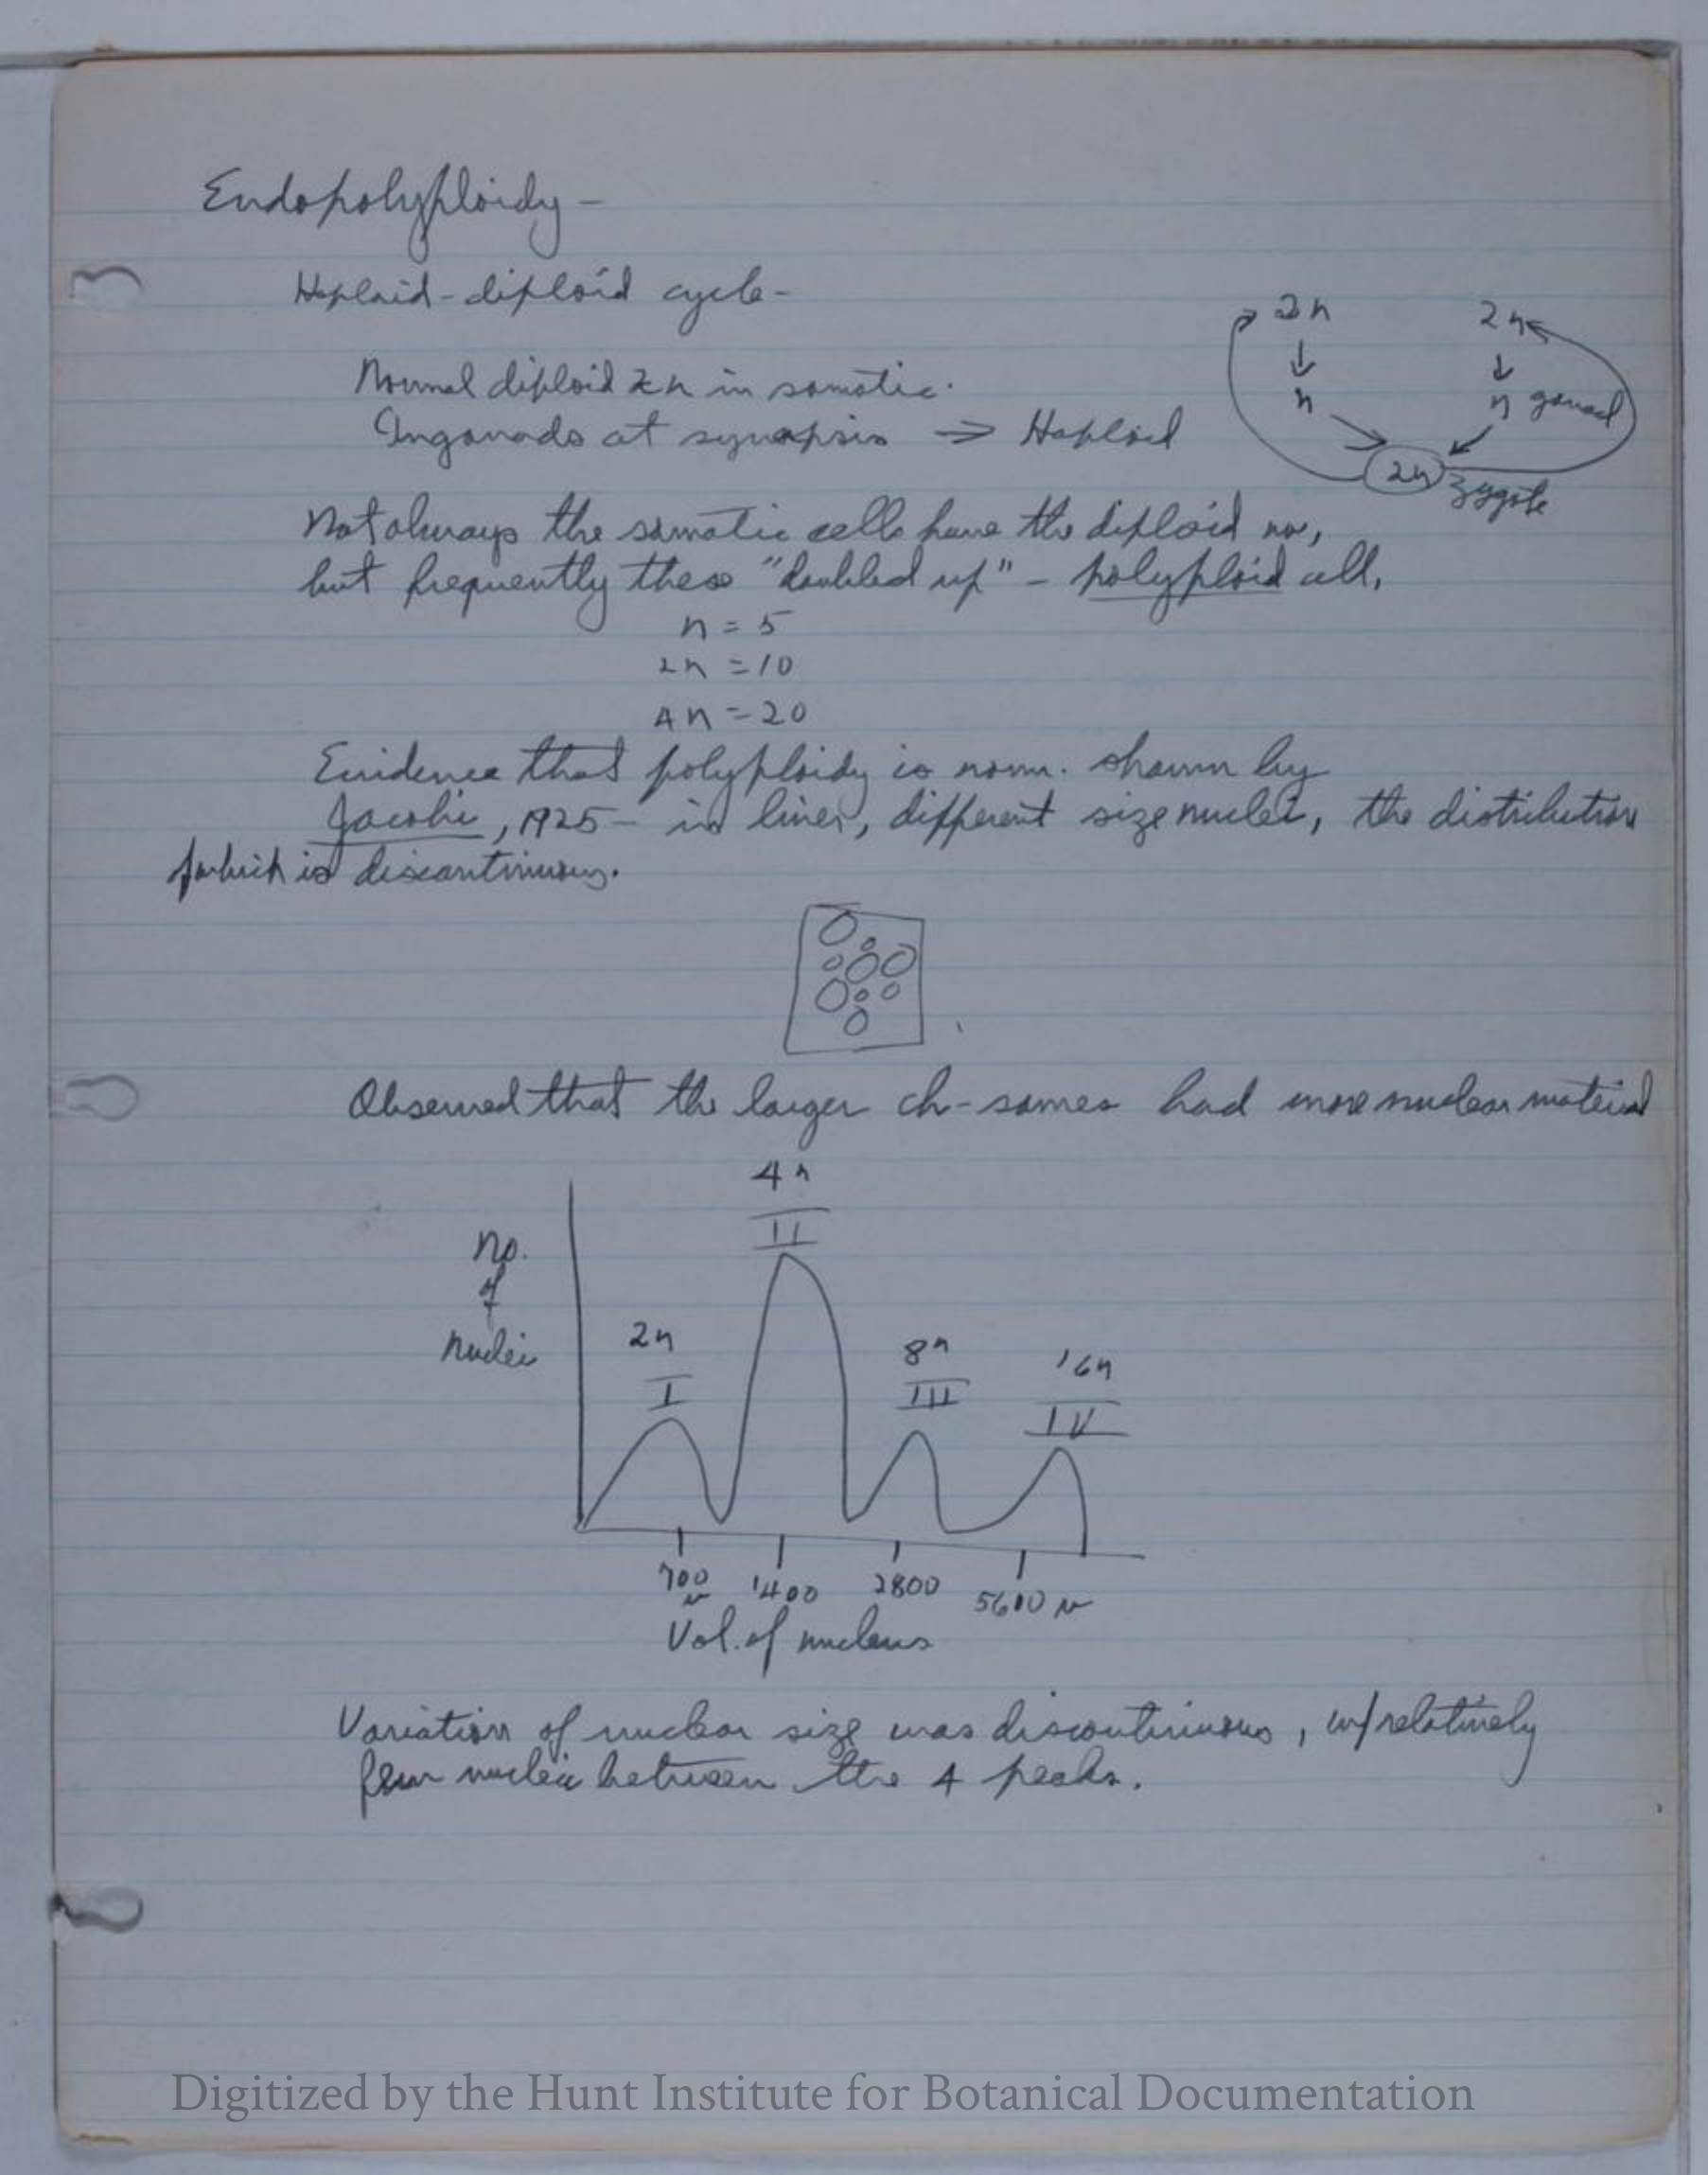 Endopolyploidy -
Haploid-diploid cycle -
2n 2n
Normal diploid 2n in somatic.
n n gonad
In gonads at synapsis → Haploid
2n zygote
Not always the somatic cells have the diploid no,
but frequently these "doubled up" - polyploid cell.
n = 5
2n = 10
4n = 20
Evidence that polyploidy is norm. shown by
Jacobi, 1925 - in liver, different size nuclei, the distribution
of which is discontinuous.
Observed that the larger ch-somes had more nuclear material
4n
II
No.
of
nuclei
2n
I
8n
III
16n
IV
700 1400 2800 5600
Vol. of nucleus
Variation of nuclear size was discontinuous, w/relatively
few nuclei between the 4 peaks.
Digitized by the Hunt Institute for Botanical Documentation